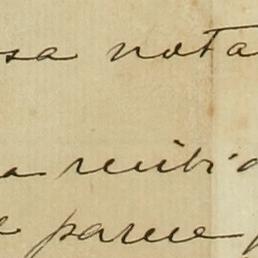 sa nota
a recibid
parece